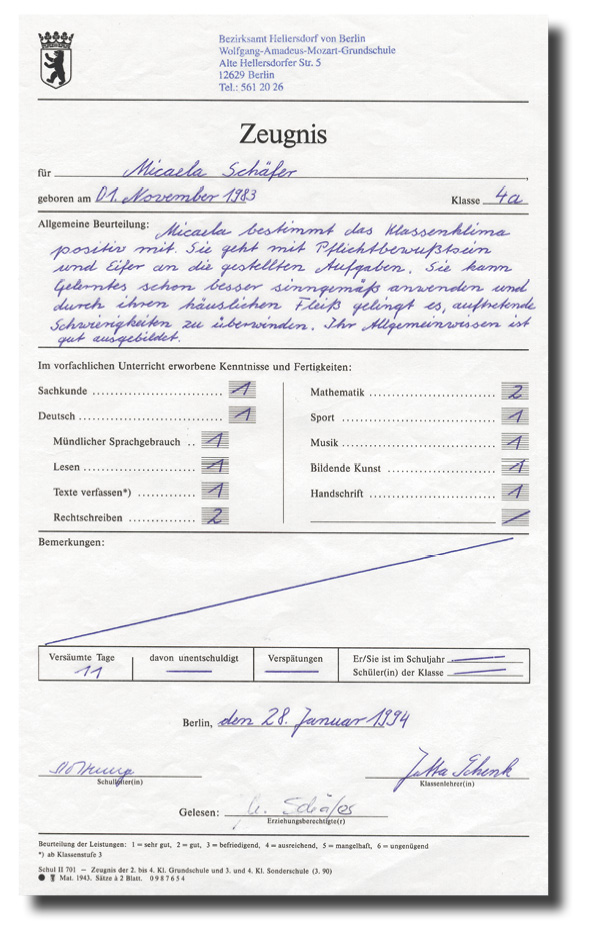 Bezirksamt Hellersdorf von Berlin
Wolfgang-Amadeus-Mozart-Grundschule
Alte Hellersdorfer Str. 5
12629 Berlin
Tel.: 561 20 26
Zeugnis
für Micaela Schäfer,
geboren am 01. November 1983 Klasse 4a
Allgemeine Beurteilung: Micaela bestimmt das Klassenklima
positiv mit. Sie geht mit Pflichtbewußtsein
und Eifer an die gestellten Aufgaben. Sie kann
Gelerntes schon besser sinngemäß anwenden und
durch ihren häuslichen Fleiß gelingt es, auftretende
Schwierigkeiten zu überwinden. Ihr Allgemeinwissen ist
gut ausgebildet.
Im vorfachlichen Unterricht erworbene Kenntnisse und Fertigkeiten:
Sachkunde 1
Deutsch 1
Mündlicher Sprachgebrauch 1
Lesen 1
Texte verfassen*) 1
Rechtschreiben 2
Mathematik 2
Sport 1
Musik 1
Bildende Kunst 1
Handschrift 1
Bemerkungen:
Versäumte Tage 11
davon unentschuldigt —
Verspätungen —
Er/Sie ist im Schuljahr —
Schüler(in) der Klasse —
Berlin, den 28. Januar 1994
Schulleiter(in)
Jutta Schenk
Klassenlehrer(in)
Gelesen: Schäfer
Erziehungsberechtigte(r)
Beurteilung der Leistungen: 1 = sehr gut, 2 = gut, 3 = befriedigend, 4 = ausreichend, 5 = mangelhaft, 6 = ungenügend
*) ab Klassenstufe 3
Schul II 701 – Zeugnis der 2. bis 4. Kl. Grundschule und 3. und 4. Kl. Sonderschule (3. 90)
Mat. 1943. Sätze à 2 Blatt. 0987654